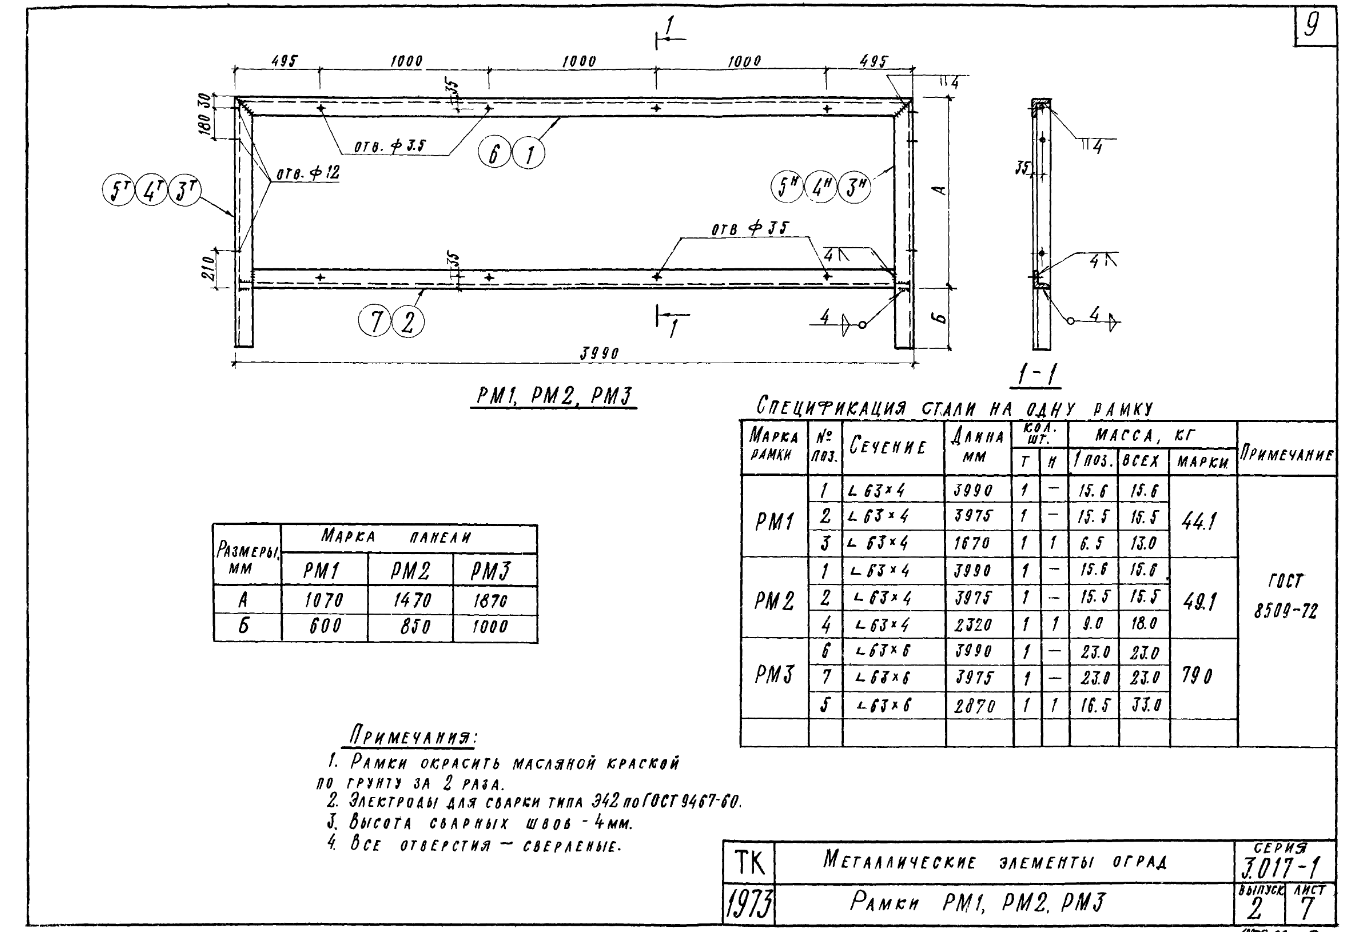 9
1
495 1000 1000 1000 495
30 180 35 4
отв. ф 3.5
6 1
отв. ф 12
5Т 4Т 3Т
5Н 4Н 3Н
А
35
4
отв ф 35
4
4
210
35
7 2
1
4
Б
4
3990
РМ1, РМ2, РМ3
1-1
Спецификация стали на одну рамку
Марка рамки № поз. Сечение Длина мм Кол. шт. Масса, кг Примечание
Т Н 1 поз. всех марки
РМ1 1 ∟ 63×4 3990 1 — 15.6 15.6 44.1 ГОСТ 8509-72
2 ∟ 63×4 3975 1 — 15.5 15.5
3 ∟ 63×4 1670 1 1 6.5 13.0
РМ2 1 ∟ 63×4 3990 1 — 15.6 15.6 49.1
2 ∟ 63×4 3975 1 — 15.5 15.5
4 ∟ 63×4 2320 1 1 9.0 18.0
РМ3 6 ∟ 63×6 3990 1 — 23.0 23.0 79 0
7 ∟ 63×6 3975 1 — 23.0 23.0
5 ∟ 63×6 2870 1 1 16.5 33.0
Размеры, мм Марка панели
РМ1 РМ2 РМ3
А 1070 1470 1870
Б 600 850 1000
Примечания:
1. Рамки окрасить масляной краской
по грунту за 2 раза.
2. Электроды для сварки типа Э42 по ГОСТ 9467-60.
3. Высота сварных швов - 4 мм.
4. Все отверстия — сверленые.
ТК Металлические элементы оград серия 3.017-1
1973 Рамки РМ1, РМ2, РМ3 выпуск 2 лист 7